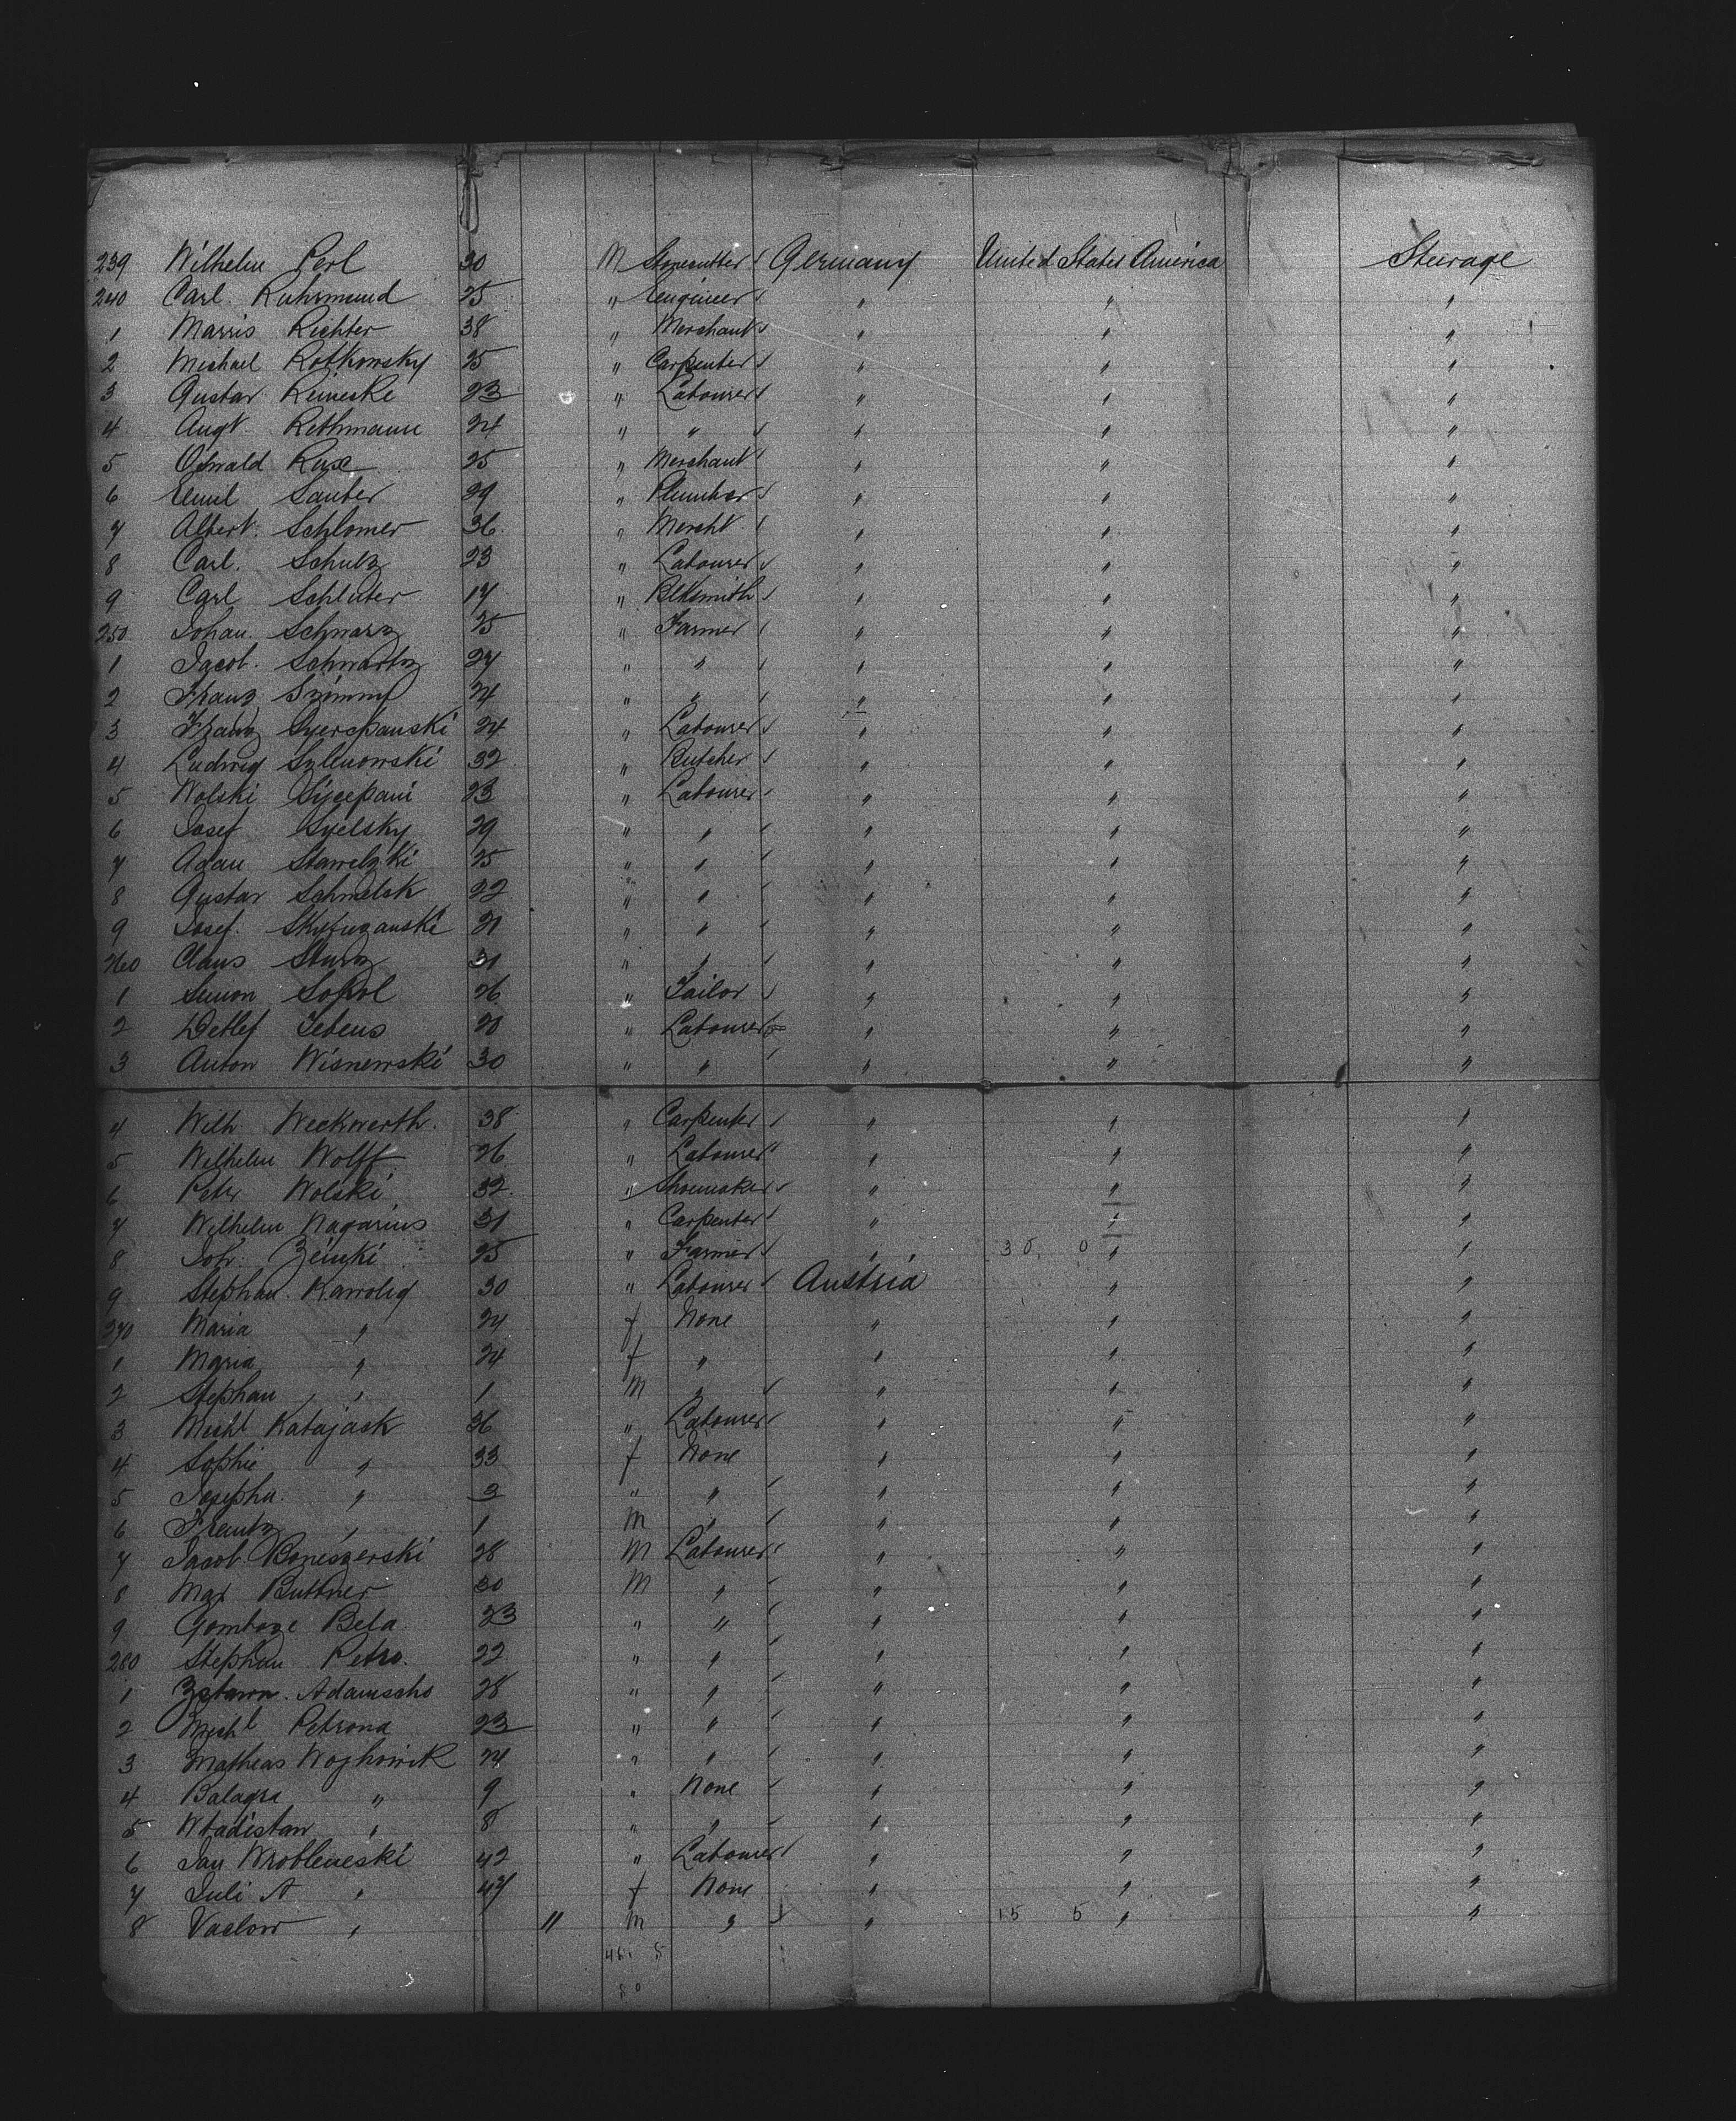 239 Wilhelm Perl 30 M Stonecutter Germany United States America Steerage
240 Carl Ruhrmund 25 " Engineer " " "
1 Marris Richter 38 " Merchant " " "
2 Michael Rotkowsky 25 " Carpenter " " "
3 Gustav Reineske 23 " Labourer " " "
4 Augt Rethmann 24 " " " " "
5 Oswald Ruse 25 " Merchant " " "
6 Emil Sauber 29 " Plumber " " "
7 Albert Schlomer 36 " Mercht " " "
8 Carl Schulz 23 " Labourer " " "
9 Carl Schluter 17 " Blksmith " " "
250 Johan Schwarz 25 " Farmer " " "
1 Jacob Schwartz 27 " " " " "
2 Franz Szimmy 24 " " " " "
3 Franz 24 " Labourer " " "
4 Ludwig Szlenowski 32 " Butcher " " "
5 Wolski 23 " Labourer " " "
6 Josef Szelsky 29 " " " " "
7 Adam 25 " " " " "
8 Gustav Schmelsk 22 " " " " "
9 Josef 21 " " " " "
260 Claus Sturz 31 " " " " "
1 Simon Sokol 26 " Tailor " " "
2 Detlef Tebens 20 " Labourer " " "
3 Anton Wisnewski 30 " " " " "
4 Wilh Weckwerth 38 " Carpenter " " "
5 Wilhelm Wolff 26 " Labourer " " "
6 Peter Wolski 32 " Shoemaker " " "
7 Wilhelm Wagarius 31 " Carpenter " " "
8 Joh. Zeinki 25 " Farmer " 30 0 " "
9 Stephan Kawolig 30 " Labourer Austria " "
270 Maria " 24 f None " " "
1 Maria " 24 f " " " "
2 Stephan " 1 M " " " "
3 Michl Katajack 36 " Labourer " " "
4 Sophie " 33 f None " " "
5 Josepha " 3 " " " " "
6 Frantz " 1 M " " " "
7 Jacob Boneszerski 28 M Labourer " " "
8 Max Buttner 30 M " " " "
9 Gomboze Bela 23 " " " " "
280 Stephan Petro. 22 " " " " "
1 Adamscho 28 " " " " "
2 Michl Petrona 23 " " " " "
3 Matheas Wojhowik 24 " " " " "
4 Balagra " 9 " None " " "
5 Wladistaw " 8 " " " " "
6 Jan Wrobleweski 42 " Labourer " " "
7 Juli A " 47 f None " " "
8 Vaclow " " M " " 15 5 " "